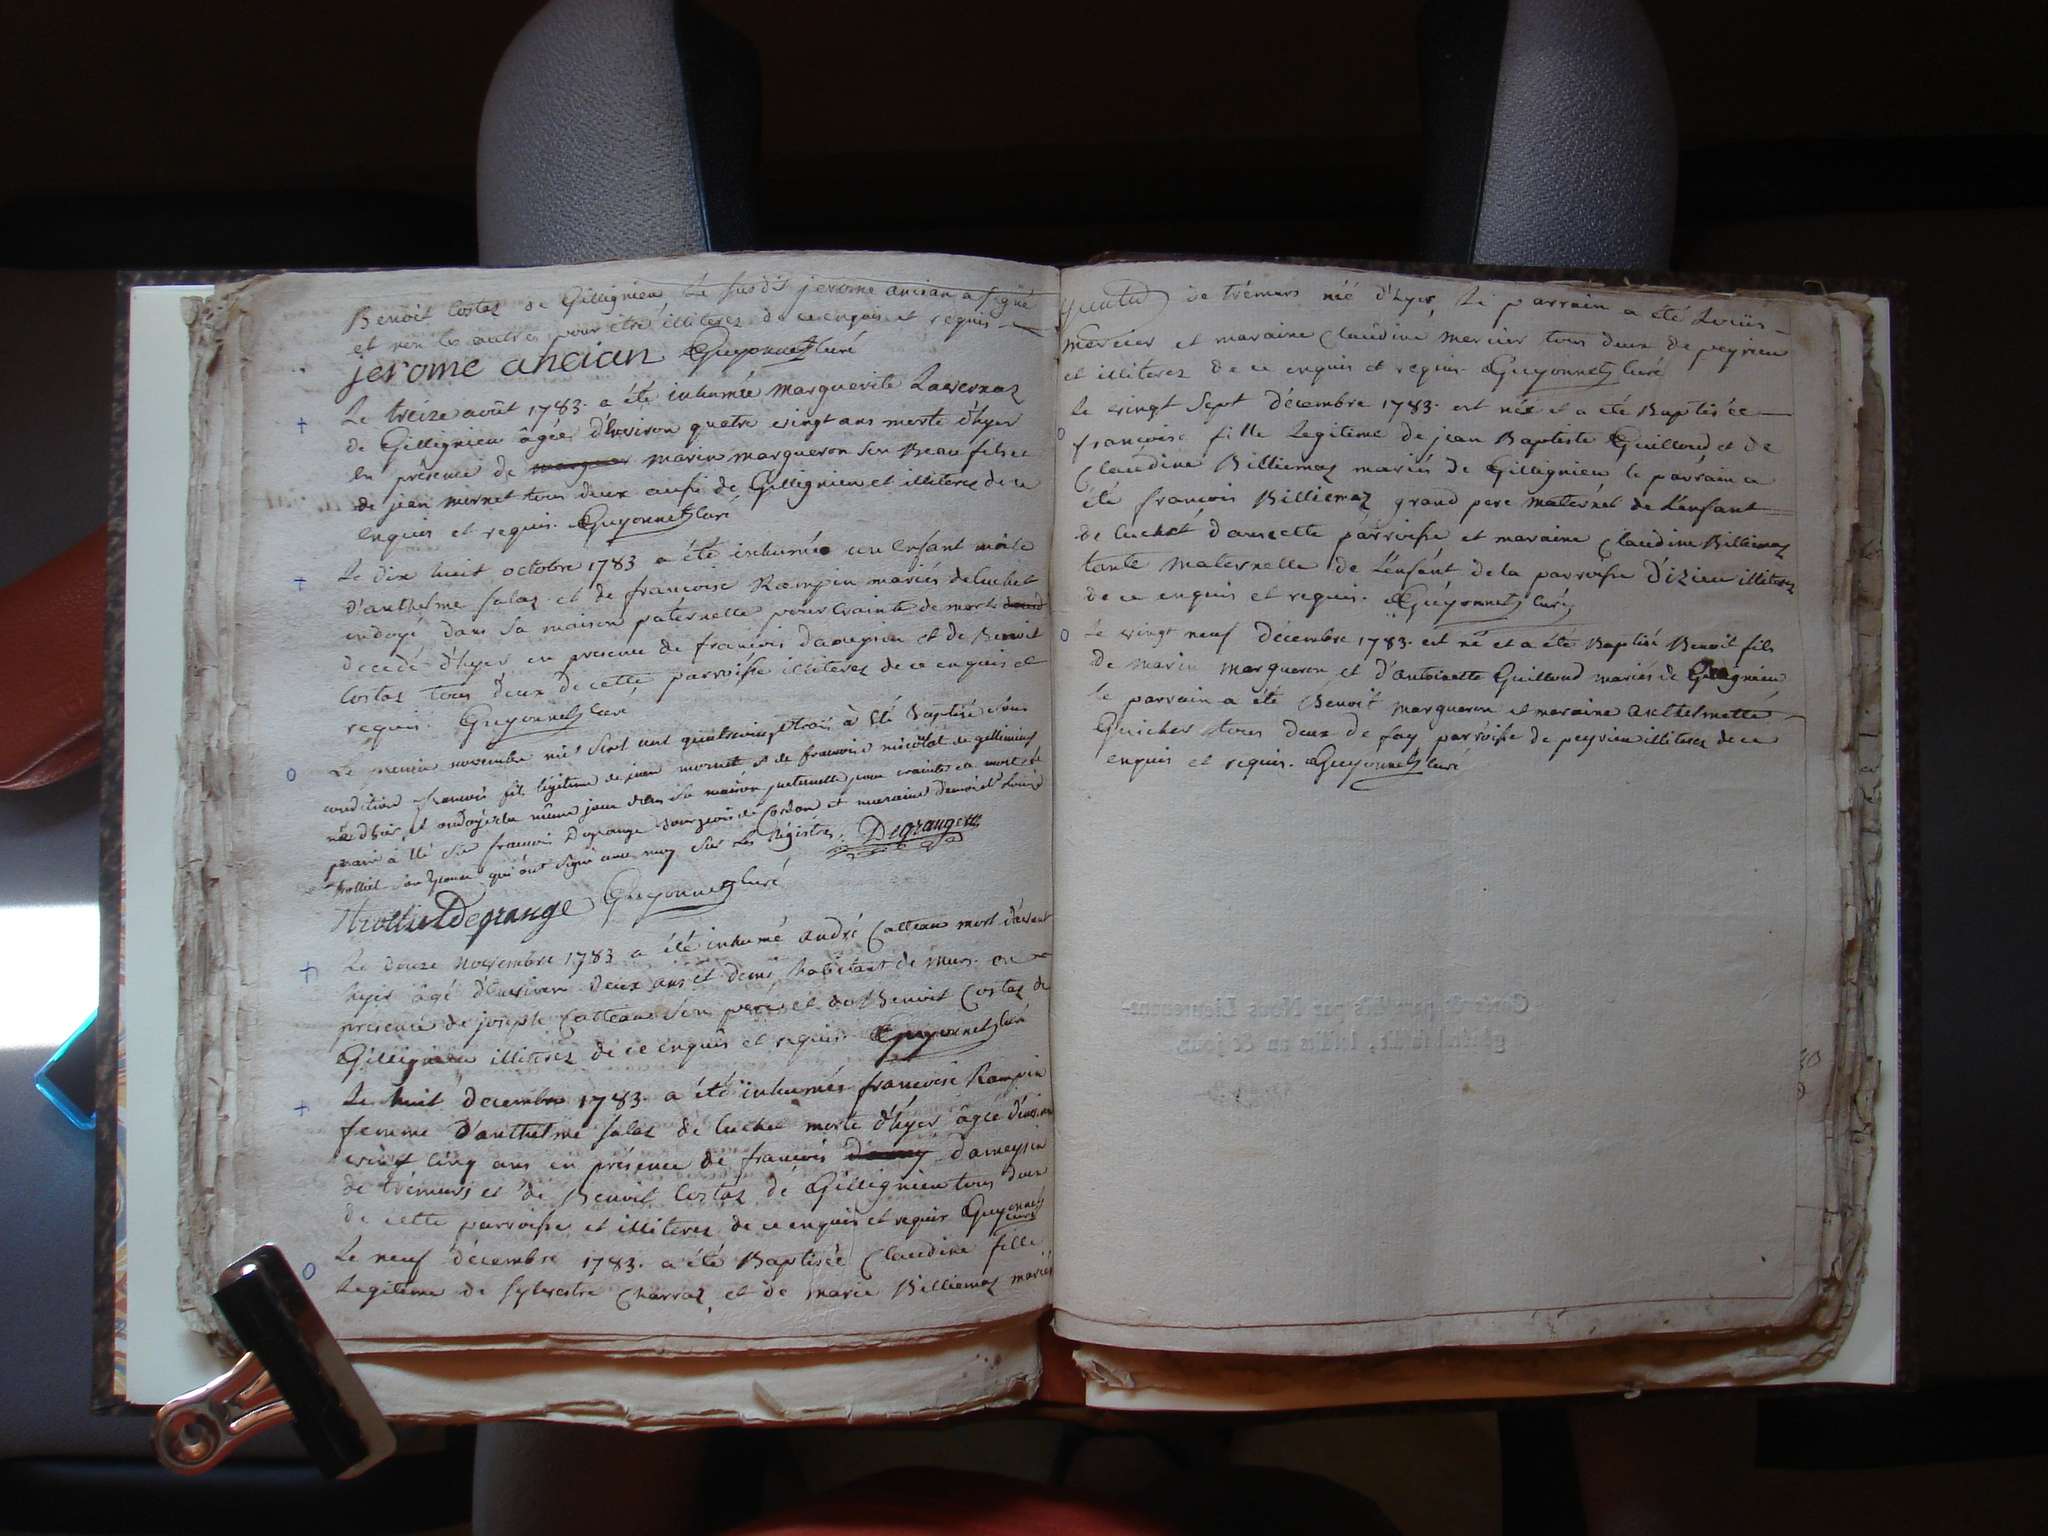 Benoit Costaz de Gillignieu le susdit jerome ancian a signé
et non les autres pour etre illiterez de ce enquis et requis
jerome ancian Guyonnet curé
Le treize août 1783. a été inhumée marguerite Lavernaz
de Gillignieu âgée d'environ quatre vingt ans morte d'hyer
en présence de marin margueron son Beau fils et
de jean mornet tous deux aussi de Gillignieu et illiterez de ce
enquis et requis. Guyonnet curé
Le dix huit octobre 1783 a été inhumé un enfant mâle
d'anthelme salaz et de francoise Rampin mariés de luchet
ondoyé dans sa maison paternelle pour crainte de mort
decedé d'hyer en presence de francois dameysin et de Benoit
Costaz tous deux de cette parroisse illiterez de ce enquis et
requis. Guyonnet curé
Le novembre mil sept cent quatrevingt trois à été Baptisé sous
condition francois fils légitime de jean mornet et de francoise micolet de
né d'hier et ondoyé le même jour dans la maison paternelle pour crainte de mort le
parain à été sr francois Degrange bourgeois de Cordon et maraine
qui ont signé avec moy sur les Régistres. Degrange
Degrange Guyonnet curé
Le douze novembre 1783 a été inhumé andré Catteau mort d'avant
hyer âgé d'environ deux ans et demi habitant de murs en
présence de joseph Catteau son pere et de Benoit Costaz de
Gillignieu illiterez de ce enquis et requis. Guyonnet curé
Le huit décembre 1783. a été inhumée francoise Rampin
femme d'anthelme salaz de luchet morte d'hyer âgée d'environ
vint cinq ans en présence de francois dameysin
de trémurs et de Benoit Costaz de Gillignieu tous deux
de cette parroisse et illiterez de ce enquis et requis Guyonnet
curé
Le neuf décembre 1783. a été Baptisée Claudine fille
Legitime de sylvestre Charvaz et de marie Billiemaz mariés
de trémurs née d'hyer, Le parrain a été Louis
mercier et maraine Claudine mercier tous deux de peyrieu
et illiterez de ce enquis et requis. Guyonnet curé
Le vingt sept décembre 1783. est née et a été Baptisée
francoise fille Legitime de jean Baptiste Guilloud et de
Claudine Billiemaz mariés de Gillignieu le parrain a
été francois Billiemaz grand pere maternel de L'enfant
de luchet dans cette parroisse et maraine Claudine Billiemaz
tante maternelle de L'enfant de la parroisse d'izieu illiterez
de ce enquis et requis. Guyonnet curé
Le vingt neuf décembre 1783. est né et a été Baptisé Benoit fils
de marin margueron et d'antoinette Guilloud mariés de Gillignieu
le parrain a été Benoit margueron et maraine anthelmette
Guicher tous deux de fay parroisse de peyrieu illiterez de ce
enquis et requis. Guyonnet curé